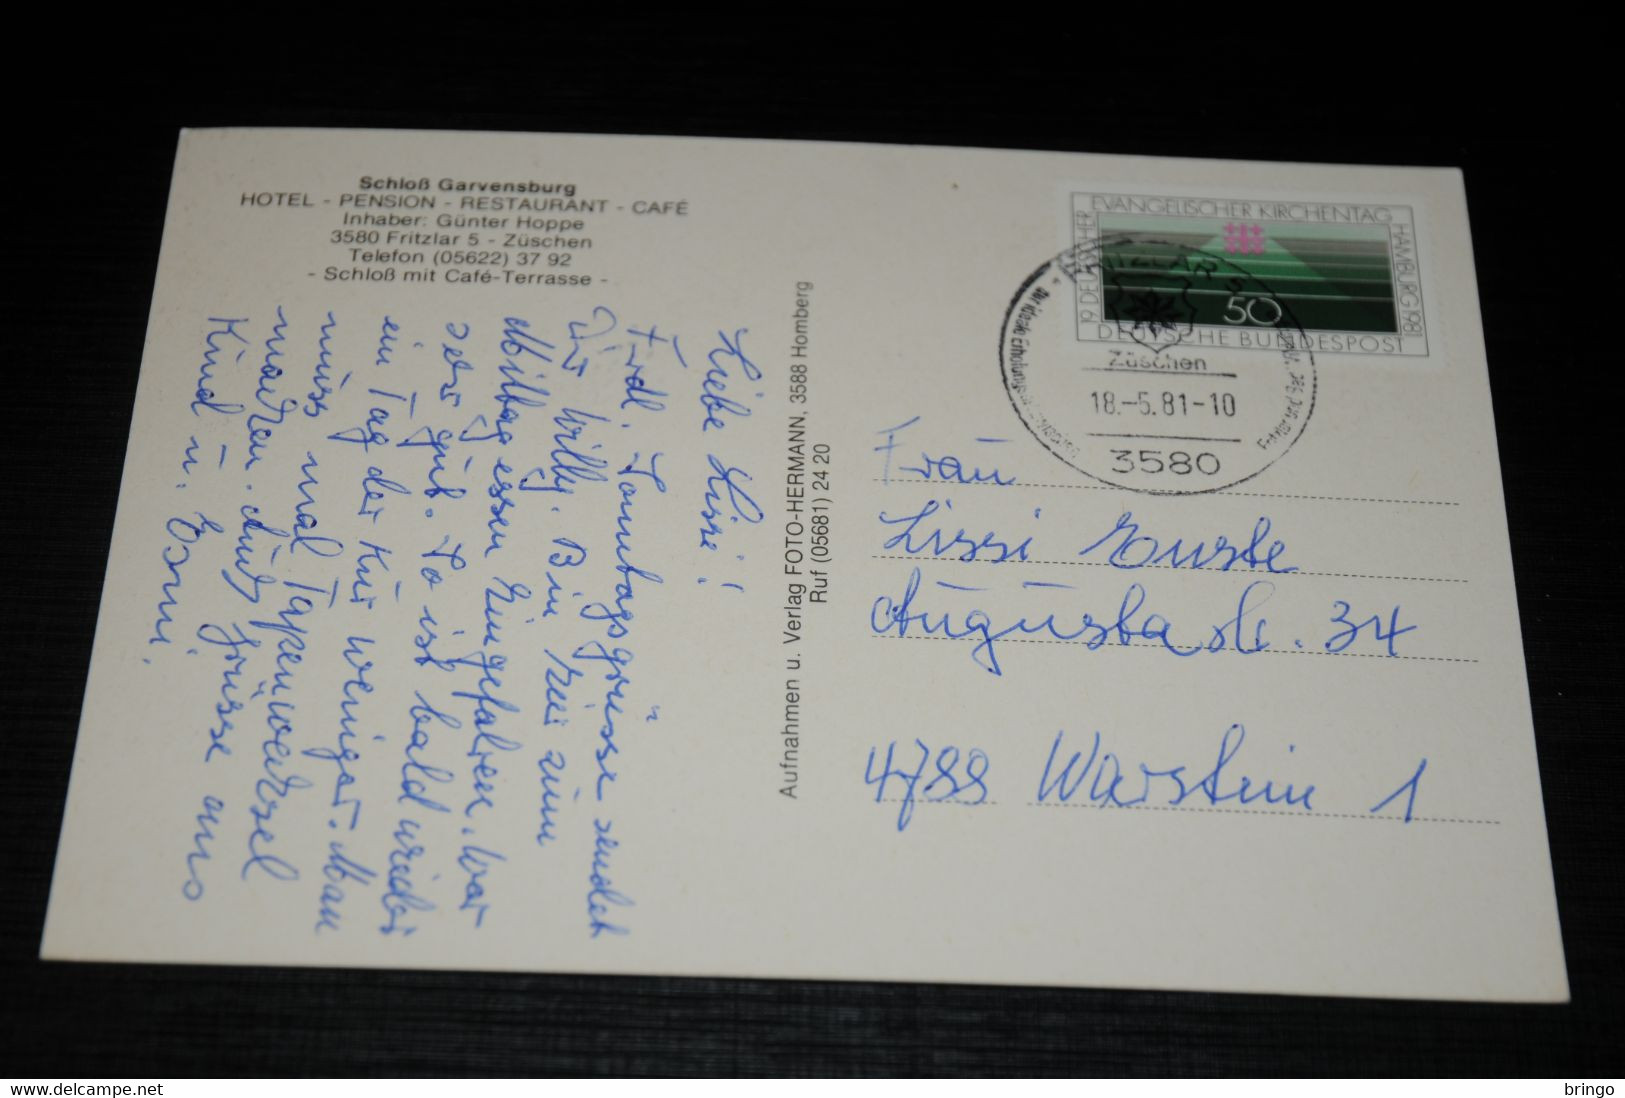 Schloß Garvensburg
HOTEL - PENSION - RESTAURANT - CAFÉ
Inhaber: Günter Hoppe
3580 Fritzlar 5 - Züschen
Telefon (05622) 37 92
- Schloß mit Café-Terrasse -
Liebe Lissi!
Frdl. Sonntagsgrüsse sendet
Dir Willy. Bin hier zum
Mittagessen hingefahren. War
sehr gut. So ist bald wieder
ein Tag der Kur weniger. Man
muss mal Tapetenwechsel
machen. Auch Grüsse ans
Kind u.
Aufnahmen u. Verlag FOTO-HERMANN, 3588 Homberg
Ruf (05681) 24 20
19. DEUTSCHER
EVANGELISCHER KIRCHENTAG
HAMBURG 1981
50
DEUTSCHE BUNDESPOST
FRITZLAR 5
Züschen
18.-5.81-10
3580
Frau
Lissi Enste
Augusta str. 34
4788 Warstein 1
bringo